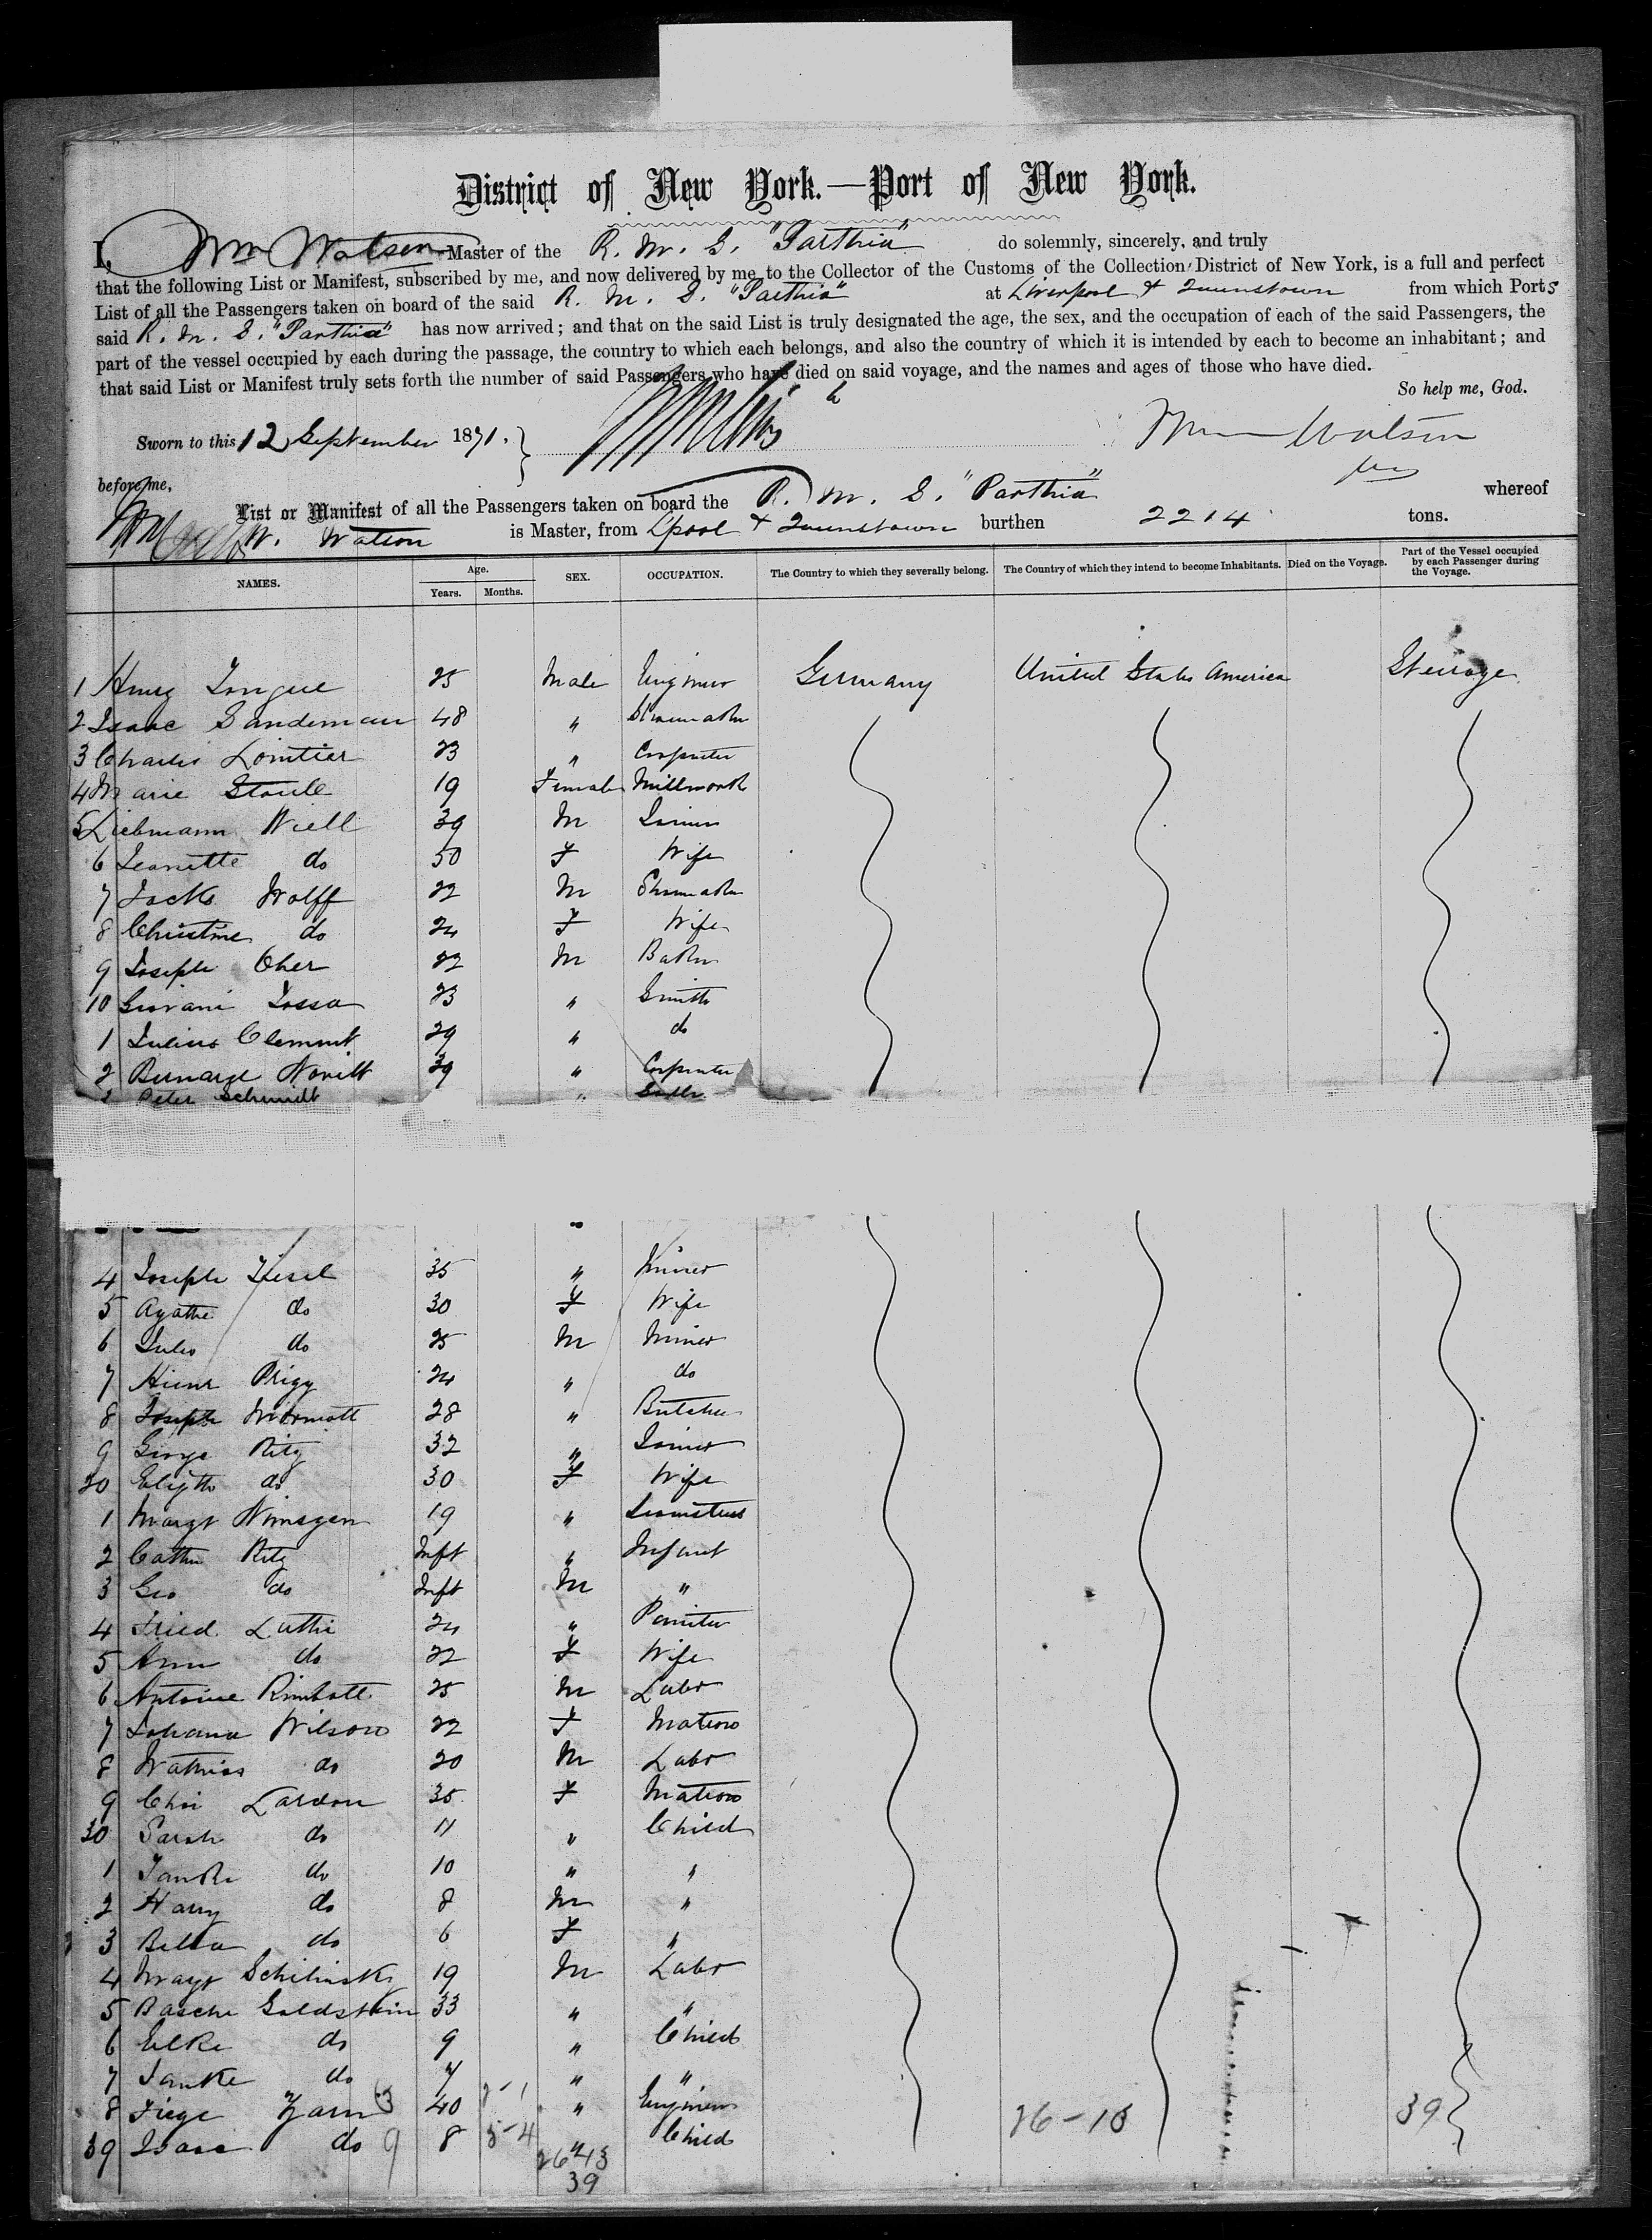 District of New York.—Port of New York.
I, Wm Watson Master of the R. M. S. "Parthia" do solemnly, sincerely, and truly
that the following List or Manifest, subscribed by me, and now delivered by me to the Collector of the Customs of the Collection District of New York, is a full and perfect
List of all the Passengers taken on board of the said R. M. S. "Parthia" at Liverpool & Queenstown from which Ports
said R. M. S. "Parthia" has now arrived; and that on the said List is truly designated the age, the sex, and the occupation of each of the said Passengers, the
part of the vessel occupied by each during the passage, the country to which each belongs, and also the country of which it is intended by each to become an inhabitant; and
that said List or Manifest truly sets forth the number of said Passengers who have died on said voyage, and the names and ages of those who have died.
So help me, God.
Sworn to this 12 September 1871.
Wm Watson
before me,
List or Manifest of all the Passengers taken on board the R. M. S. "Parthia" whereof
W. Watson is Master, from L'pool & Queenstown burthen 2214 tons.
NAMES. Age. Years. Months. SEX. OCCUPATION. The Country to which they severally belong. The Country of which they intend to become Inhabitants. Died on the Voyage. Part of the Vessel occupied by each Passenger during the Voyage.
1 Henry Tongue 25 Male Engineer Germany United States America Steerage
2 Isaac Sandeman 48 " Shoemaker
3 Charles Lointier 23 " Carpenter
4 Marie Staule 19 Female Millwork
5 Liebmann Weill 39 M Joiner
6 Jeanette do 50 F Wife
7 Jacks Wolff 22 M Shoemaker
8 Christine do 24 F Wife
9 Joseph Oher 22 M Baker
10 Giovani Tossa 23 " Smith
1 Julius Clement 29 " do
2 Bernarge Novitt 39 " Carpenter
3 Peter Schmidt "
4 Joseph 35 " Miner
5 Agathe do 30 F Wife
6 Jules do 25 M Miner
7 Prigy 24 " do
8 Joseph 28 " Butcher
9 George Ritz 32 " Joiner
20 Elizth do 30 F Wife
1 Margt Nimsgen 19 " Seamstress
2 Cathn Ritz Inft " Infant
3 Geo do Inft M "
4 Fried Luthi 24 " Painter
5 Ann do 22 F Wife
6 Antoine Rimbatt 25 M Labr
7 Johana Wilson 22 F Matron
8 Mathias do 20 M Labr
9 Lardon 35 F Matron
30 Sarah do 11 " Child
1 Janke do 10 " "
2 Harry do 8 M "
3 Bella do 6 F "
4 Mayr Schilinsky 19 M Labr
5 Basche Goldstein 33 " "
6 Elke do 9 " Child
7 Janke do 7 " "
8 Fiege Zarn 40 " Engineer
39 Isaac do 8 " Child
26-13 39
39